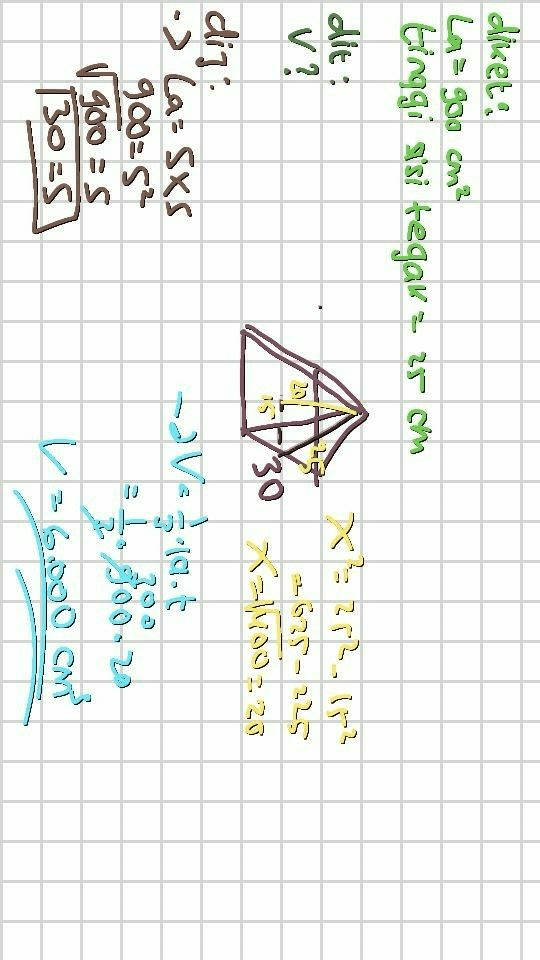 diket:
La = 900 cm²
tinggi sisi tegak = 25 cm
dit:
V?
dij:
-> La = s x s
900 = s²
√900 = s
30 = s
20
25
15
30
x² = 25² - 15²
= 625 - 225
x = √400 = 20
-> V = 1/3 . la . t
300
= 1/3 . 900 . 20
V = 6.000 cm³